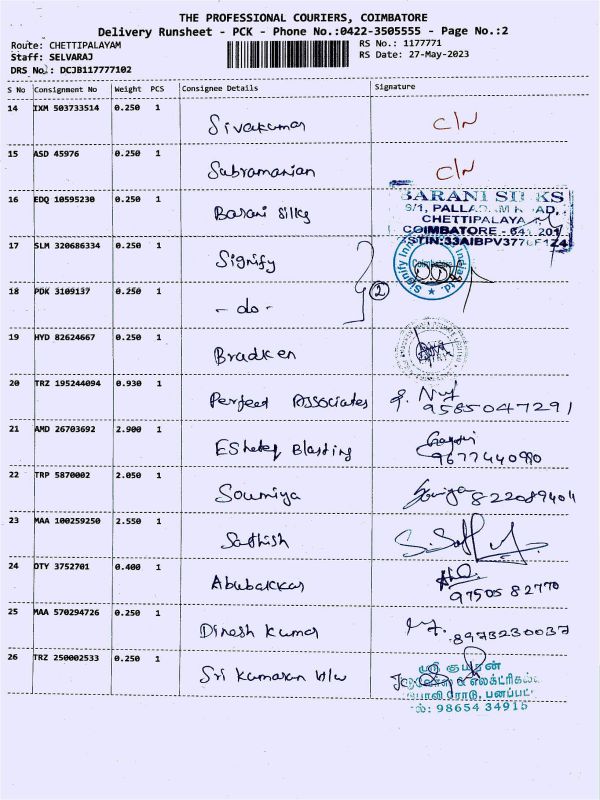 THE PROFESSIONAL COURIERS, COIMBATORE
Delivery Runsheet - PCK - Phone No.:0422-3505555 - Page No.:2
Route: CHETTIPALAYAM RS No.: 1177771
Staff: SELVARAJ RS Date: 27-May-2023
DRS No.: DCJB117777102
S No Consignment No Weight PCS Consignee Details Signature
14 IXM 503733514 0.250 1
Sivakumar C/N
15 ASD 45976 0.250 1
Subramanian C/N
16 EDQ 10595230 0.250 1
Barani Silks
BARANI SILKS
CHETTIPALAYAM
COIMBATORE - 641 201
17 SLM 320686334 0.250 1
Signify
Coimbatore
②
18 PDK 3109137 0.250 1
- do -
19 HYD 82624667 0.250 1
Bradken
20 TRZ 195244094 0.930 1
Perfect Associates
9585047291
21 AMD 26703692 2.900 1
Blasting
9677440990
22 TRP 5870002 2.050 1
Soumiya
822089404
23 MAA 100259250 2.550 1
Sathish
24 OTY 3752701 0.400 1
Abubakkar
97505 82770
25 MAA 570294726 0.250 1
Dinesh Kumar
8973230037
26 TRZ 250002533 0.250 1
Sri Kumaran H/W
ஸ்ரீ குமரன்
98654 34915